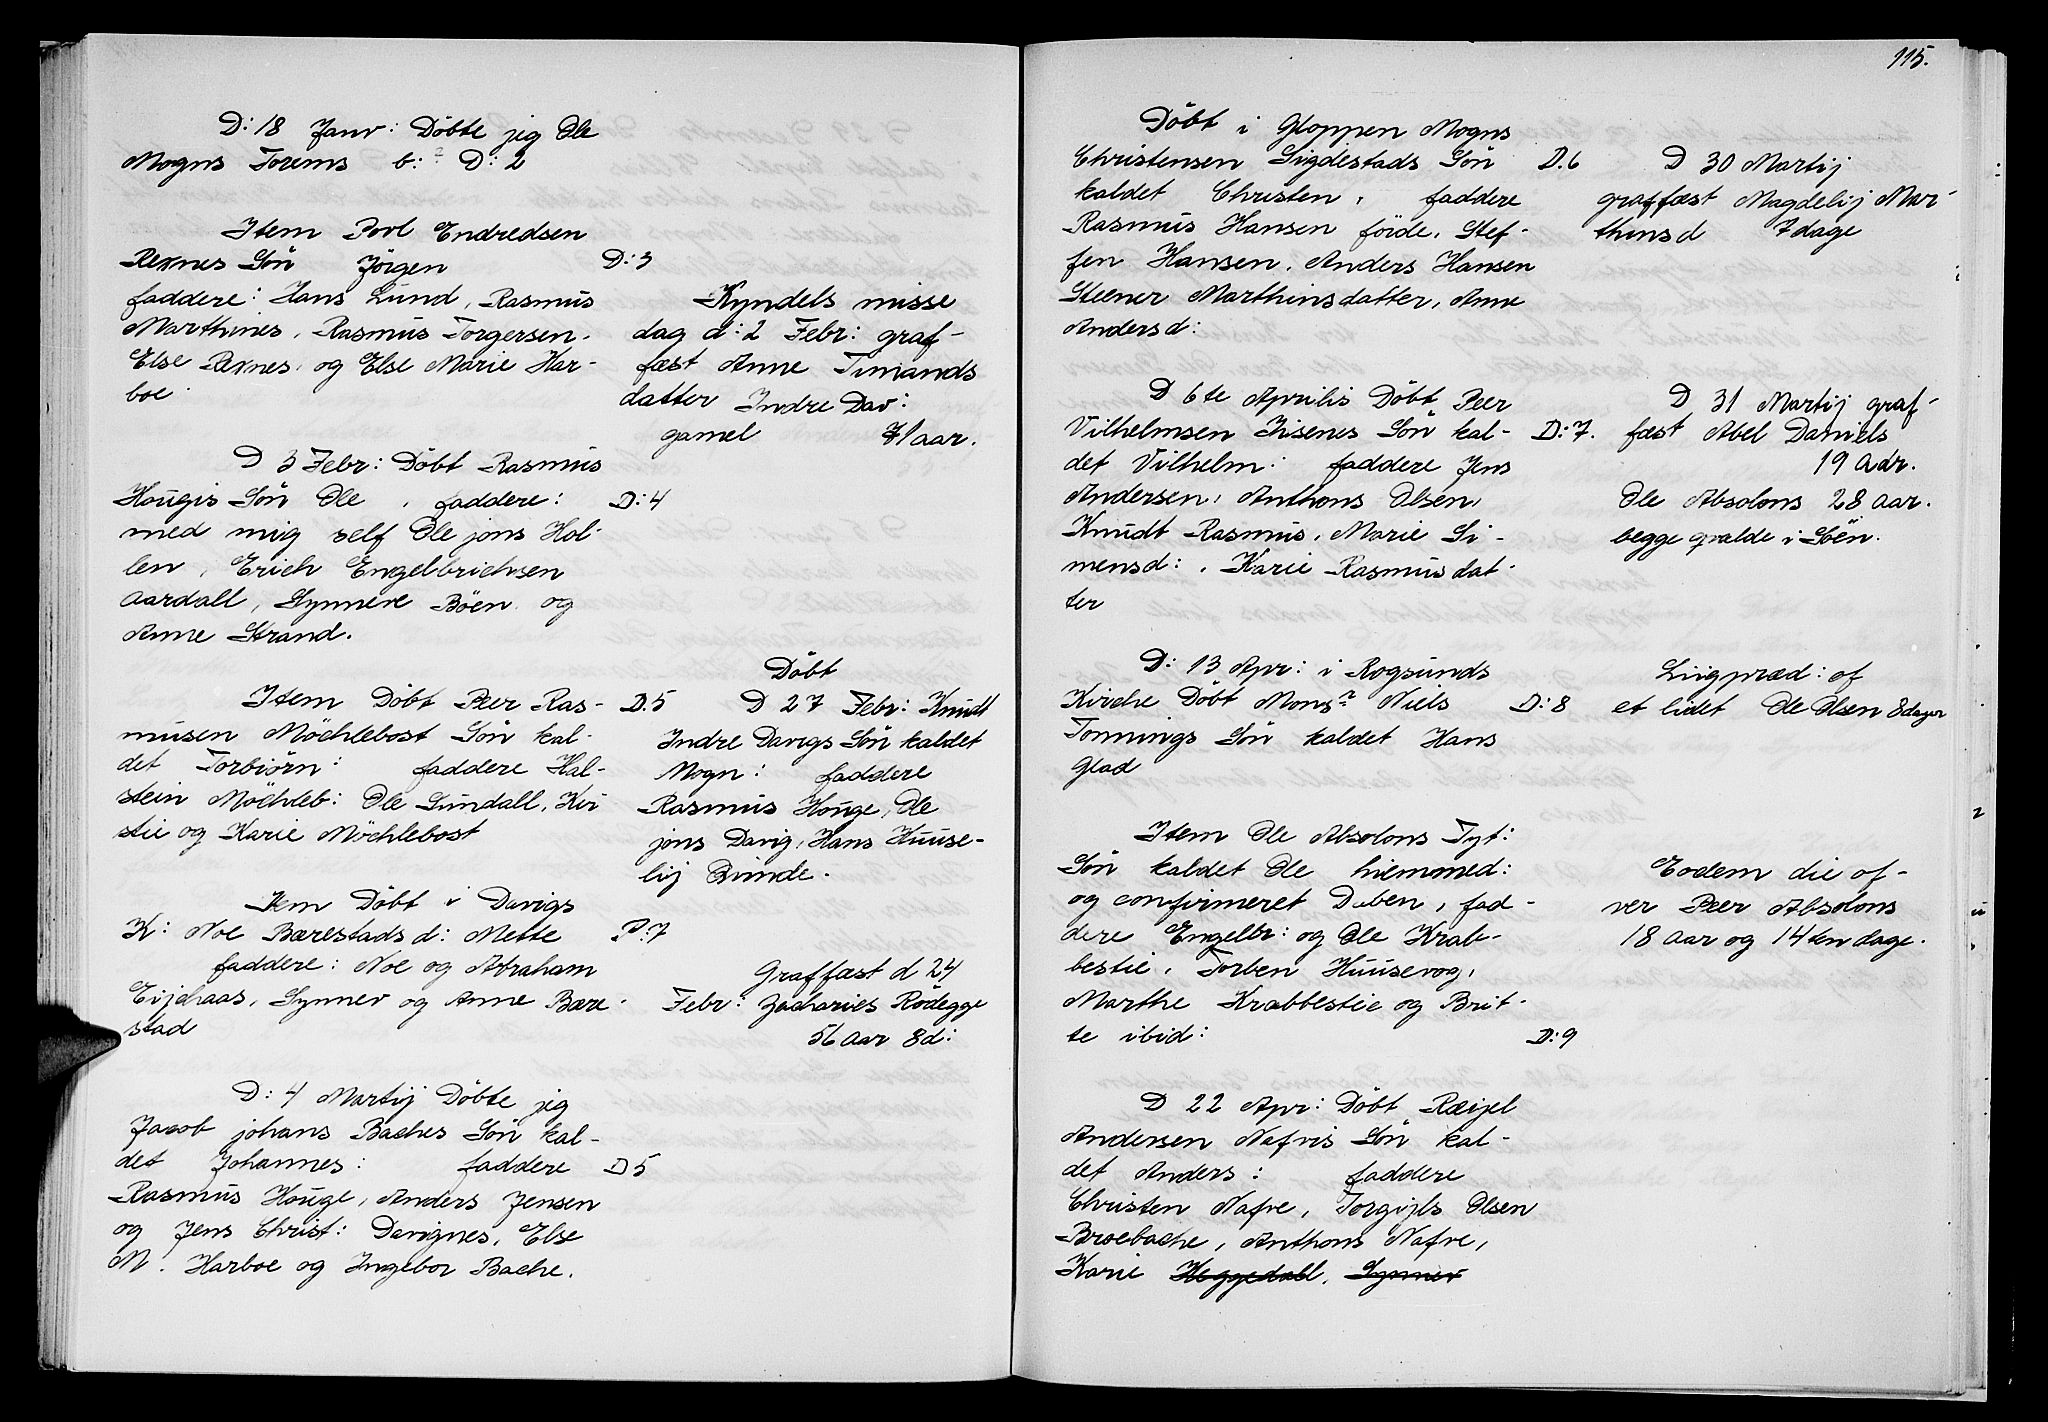 D: 18 Janv: Döbte jeg Ole
Mogns Torems b:? D: 2
Item Povl Endredsen
Rexnes Sön Jörgen D: 3
faddere: Hans Lund, Rasmus
Marthines, Rasmus Torgersen.
Else Rexnes, og Else Marie Har-
boe
D 3 Febr: Döbt Rasmus
Hougis Sön Ole, faddere: D: 4
med mig self Ole jons Hol-
len, Erich Engelbrichsen
Aardall, Synneve Böen og
Anne Strand.
Item Döbt Peer Ras- D.5
musen Möchlebost Sön kal-
det Torbiörn: faddere Hal-
stein Möchleb: Ole Sundall, Kir
stie og Karie Möchlebost
Item Döbt i Davigs
K: Noe Bærestads d: Mette D:7
faddere: Noe og Abraham
Eijdhaas, Synnev og Anne Bære-
stad
D: 4 Martij Döbte jeg
Jacob johans Baches Sön kal-
det Johannes: faddere D 5
Rasmus Houge, Anders Jensen
og Jens Christ: Davignes, Else
M. Harboe og Ingebor Bache.
Kyndels misse
dag d: 2 Febr: graf-
fæst Anne Timands
datter Indre Dav:
gamel 71 aar.
Döbt
D 27 Febr: Knudt
Indre Davigs Sön kaldet
Mogn: faddere
Rasmus Houge, Ole
jons Davig, Hans Huuse-
lij Qvinde.
Graffæst d 24
Febr: Zacharies Rödegge
56 Aar 8d:
115.
Döbt i Gloppen Mogns
Christensen Sigdestads Sön D.6
kaldet Christen, faddere
Rasmus Hansen förde. Stef-
fen Hansen, Anders Hansen
Steener Marthinsdatter, Anne
Andersd:
D 6te Aprilis Döbt Peer
Vilhelmsen Hisenes Sön kal- D: 7.
det Vilhelm: faddere Jens
Andersen, Anthons Olsen,
Knudt Rasmus, Marie Si-
mensd:, Karie Rasmusdat-
ter
D: 13 Apr: i Rogsunds
Kirche Döbt Monsr Niels D: 8
Tonnings Sön kaldet Hans
Glad
Item Ole Absolons Tyt:
Sön kaldet Ole hiemmed:
og confirmeret Daben, fad-
dere Engelbr: og Ole Krab-
bestie, Torben Huusevog,
Marthe Krabbestie og Brit-
te ibid: D: 9
D 22 Apr: Döbt Ræijel
Andersen Nafvis Sön kal-
det Anders: faddere
Christen Nafve, Torgijls Olsen
Broebache, Anthons Nafve,
Karie Heggedall. Synnev
D 30 Martij
graffæst Magdelij Mar-
thinsd 7 dage
D 31 Martij graf-
fæst Abel Daniels
19 Adr.
Ole Absolons 28 Aar.
begge qvalde i Söen.
Liigpræd: of
et lidet Ole Olsen 8 dager
Eodem die of-
ver Peer Absolons
18 Aar og 14ten dage.